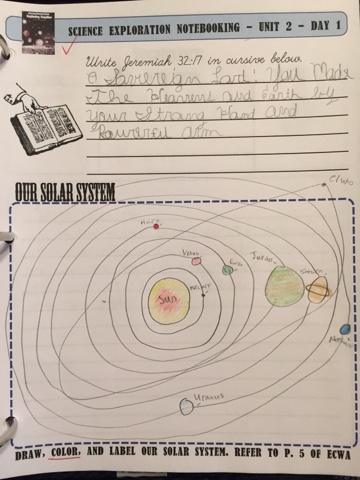 SCIENCE EXPLORATION NOTEBOOKING – UNIT 2 – DAY 1
Write Jeremiah 32:17 in cursive below.
O Sovereign Lord! You Made
The Heavens and Earth by
your Strong Hand and
Powerful arm
OUR SOLAR SYSTEM
Pluto
Mars
Venus
Earth
Mercury
Sun
Jupiter
Saturn
Neptune
Uranus
DRAW, COLOR, AND LABEL OUR SOLAR SYSTEM. REFER TO P. 5 OF ECWA